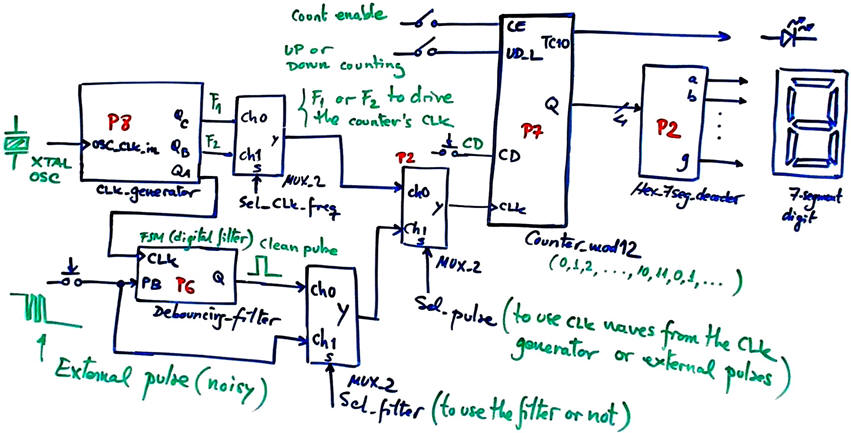 Count enable
UP or
Down counting
CE
UD_L
TC10
Q
P7
CD
CD
CLK
Counter_mod12
(0,1,2, ...., 10, 11, 0, 1, ...)
4
P2
a
b
g
Hex_7seg_decoder
7-segment
digit
P8
OSC_CLK_in
QC
QB
QA
CLK_generator
XTAL
OSC
F1
F2
ch0
ch1
S
Y
MUX_2
Sel_CLK_freq
F1 or F2 to drive
the counter's CLK
P2
ch0
ch1
S
Y
MUX_2
Sel_pulse (to use CLK waves from the CLK
generator or external pulses)
FSM (digital filter)
Clean pulse
CLK
PB
P6
Q
Debouncing-filter
ch0
ch1
S
Y
MUX_2
Sel_filter (to use the filter or not)
External pulse (noisy)